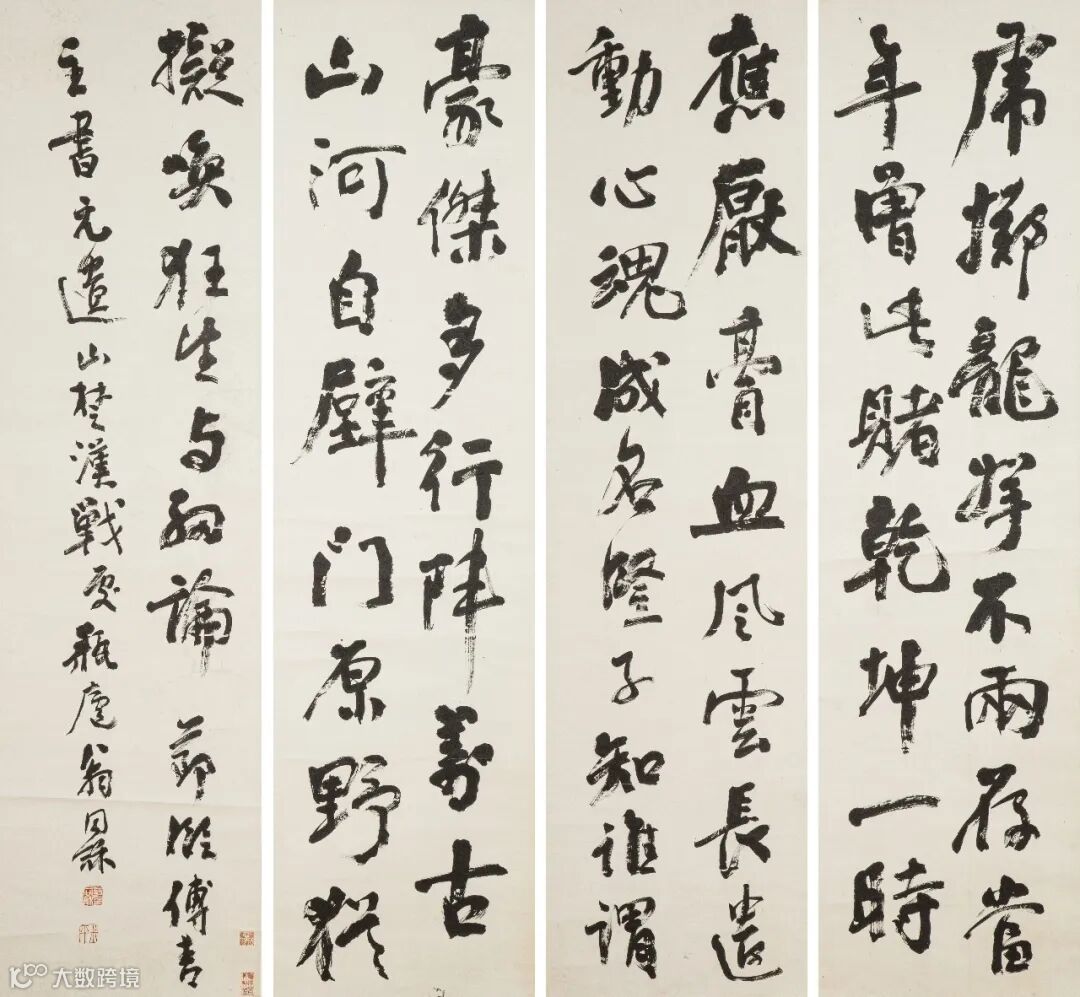 虎擲龍拏不兩存當
年曾此賭乾坤一時
應厭膏血风雲長遣
動心魂成名豎子知誰謂
豪傑多行陣萬古
山河自壁门原野猶
擬喚狂生与細論 節臨傅青
主書元遺山楚漢戰處瓶廬翁同龢
大数跨境